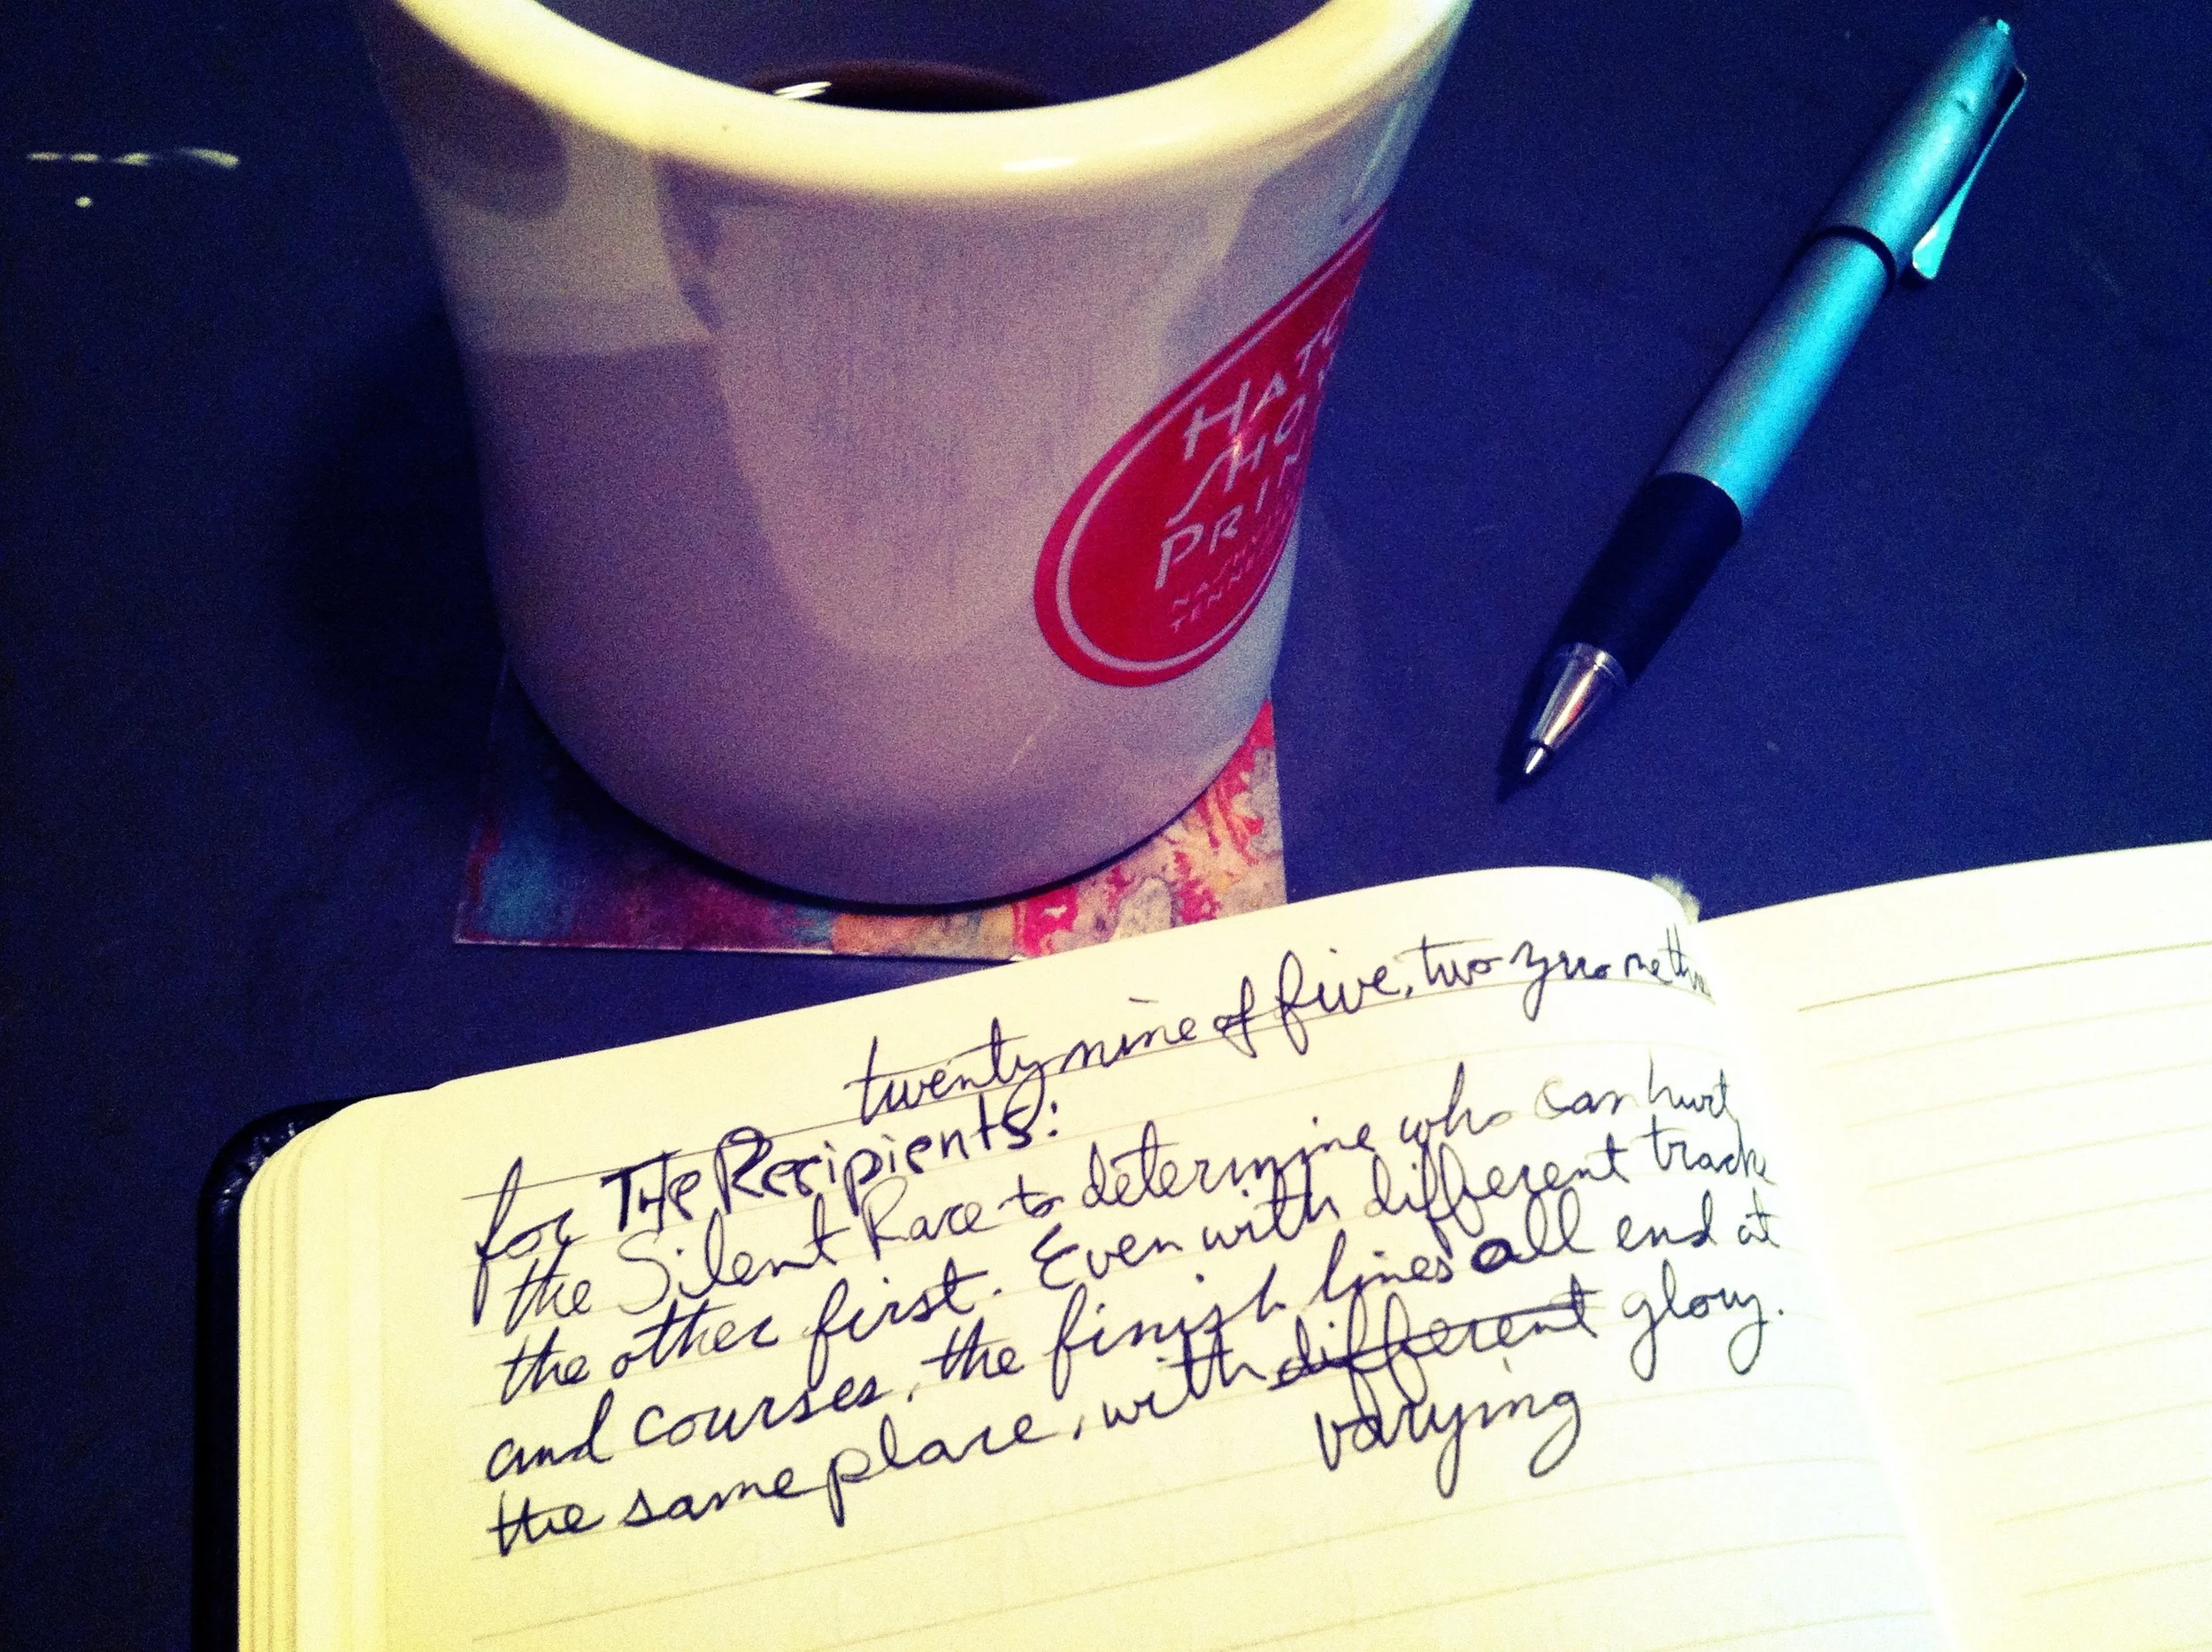 HATC
SHO
PRIN
NASHVI
TENNE
twenty nine of five, two zero one three
for THe Recipients:
the Silent Race to determine who can hurt
the other first. Even with different tracks
and courses, the finish lines all end at
the same place, with different glory.
varying